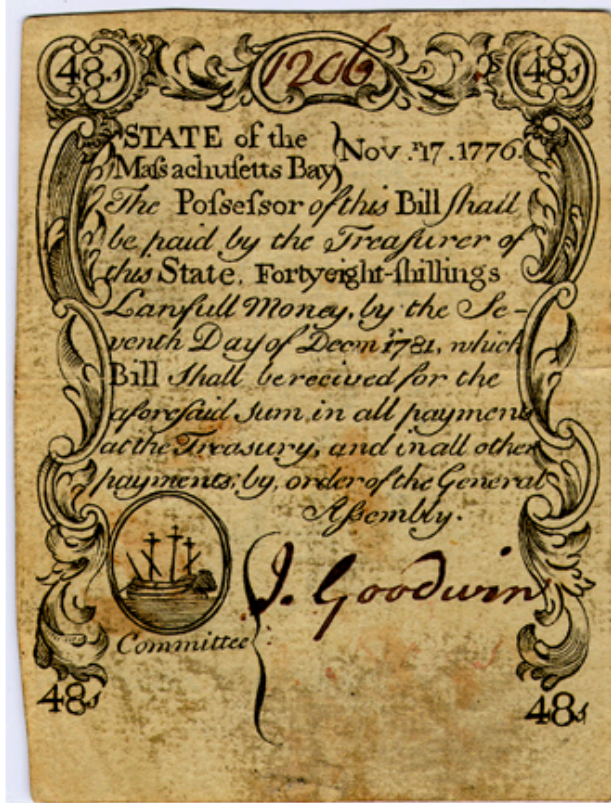 48s 1206 48s
STATE of the
Maſsachusetts Bay} Nov.r 17.1776.
The Poſseſsor of this Bill ſhall
be paid by the Treaſurer of
this State, Fortyeight-ſhillings
Lawfull Money, by the Se-
venth Day of Decm.r 1781, which
Bill ſhall be recived for the
aforeſaid ſum in all payments
at the Treasury, and in all other
payments, by, order of the General
Aſsembly.
Committee { J. Goodwin
48s 48s